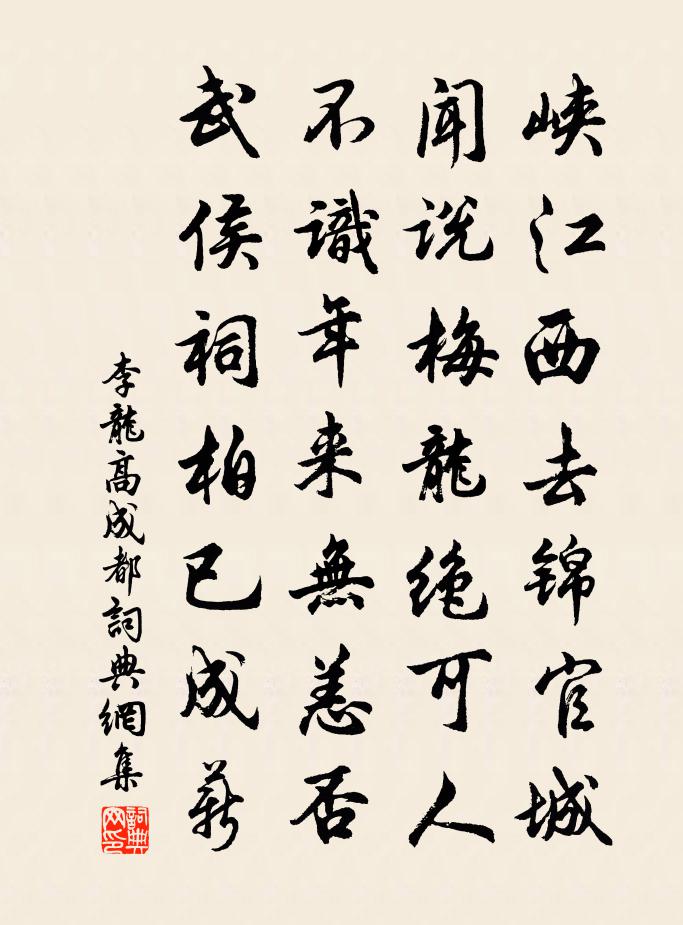 峡江西去锦官城
闻说梅龍绝可人
不識年来無恙否
武侯祠柏已成薪
李龍高成都詞典網集
詞典网印